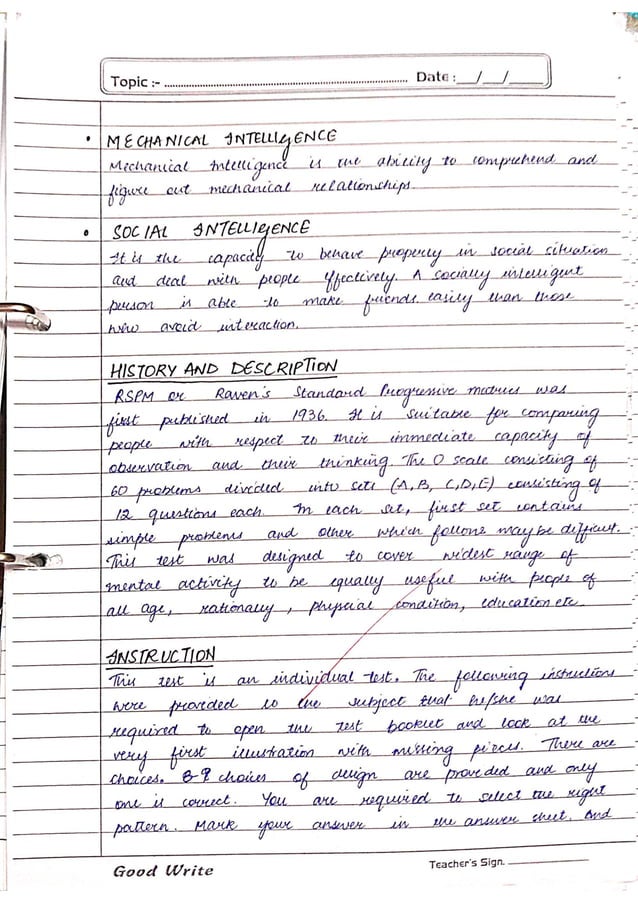 Topic :- ........ Date :__/__/____
• MECHANICAL INTELLIGENCE
Mechanical Intelligence is the ability to comprehend and
figure out mechanical relationships.
• SOCIAL INTELLIGENCE
It is the capacity to behave property in social situation
and deal with people effectively. A socially intelligent
person is able to make friends easily than those
who avoid interaction.
HISTORY AND DESCRIPTION
RSPM or Raven's Standard Progressive matrics was
first published in 1936. It is suitable for comparing
people with respect to their immediate capacity of
observation and their thinking. The O scale consisting of
60 problems divided into sets (A, B, C, D, E) consisting of
12 questions each. In each set, first set contains
simple problems and other which follows may be difficult.
This test was designed to cover widest range of
mental activity to be equally useful with people of
all age, nationally, physcial condition, education etc.
INSTRUCTION
This test is an individual test. The following instructions
were provided to the subject that he/she was
required to open the test booklet and look at the
very first illustration with missing pieces. There are
choices. 8-9 choices of design are provided and only
one is correct. You are required to select the right
pattern. Mark your answer in the answer sheet. And
Good Write Teacher's Sign.